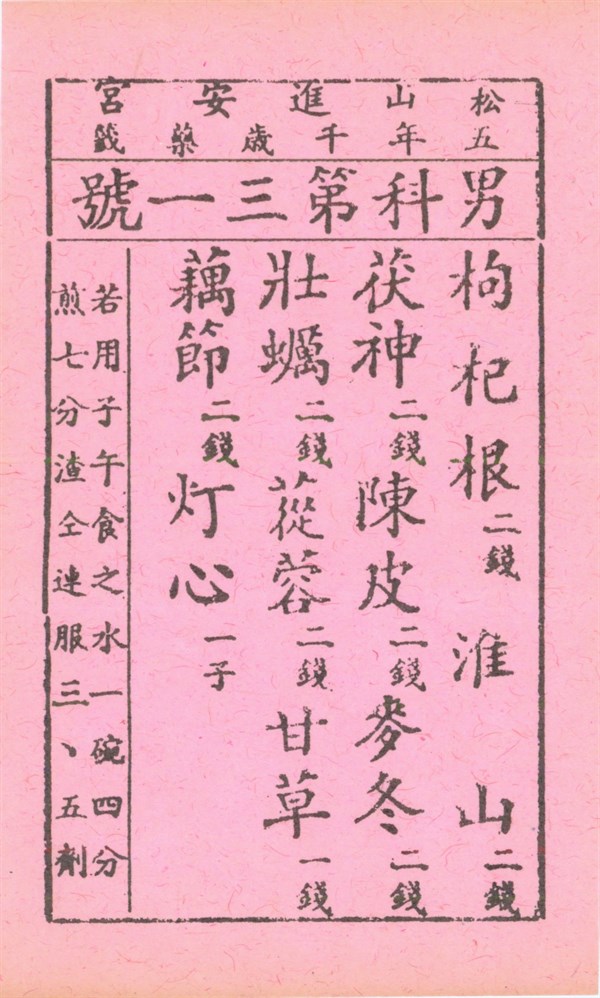 松山進安宮
五年千歲藥籤
男科第三一號
枸杞根二錢 淮山二錢
茯神二錢陳皮二錢麥冬二錢
壯蠣二錢蓯蓉二錢甘草一錢
藕節二錢灯心一子
若用子午食之水一碗四分
煎七分渣仝連服三、五劑